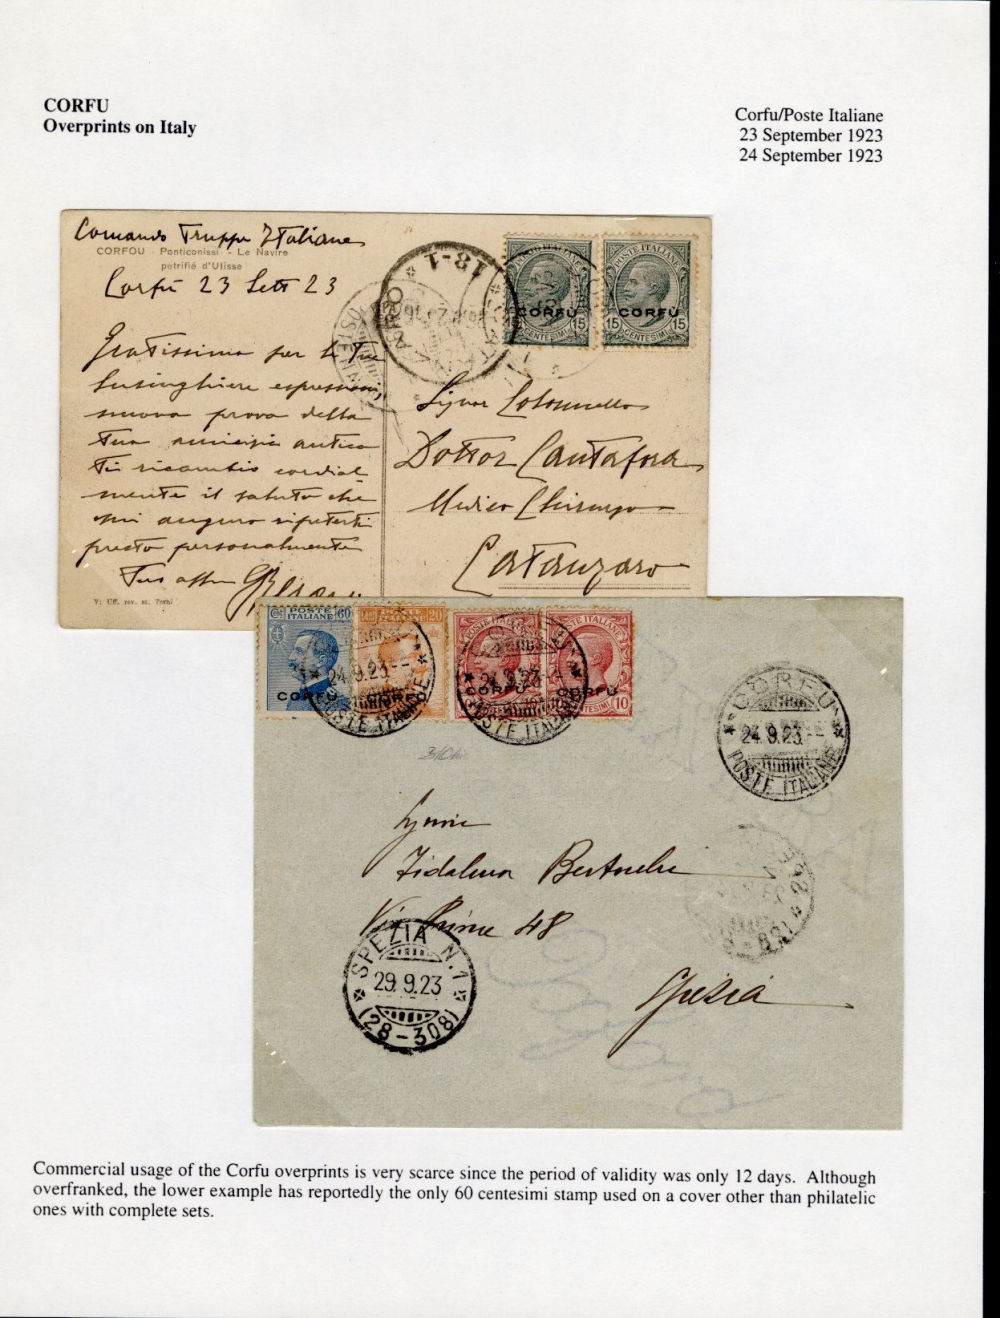 CORFU
Overprints on Italy
Corfu/Poste Italiane
23 September 1923
24 September 1923
Comando Truppe Italiane
CORFOU Ponticonissi - Le Navire
petrifié d'Ulisse
Corfù 23 Sett 23
Gratissimo per le Tue
lusinghiere espressioni
nuova prova della
Tua amicizia antica
Ti ricambio cordial-
mente il saluto che
mi auguro ripeterti
presto personalmente
Tuo
POSTE ITALIANE
CORFÙ
15 CENTESIMI 15
POSTE ITALIANE
CORFÙ
15 CENTESIMI 15
Signor Colonnello
Dottor Cantafora
Medico Chirurgo
Catanzaro
POSTE ITALIANE 60
CORFÙ
20
POSTE ITALIANE
CORFÙ
POSTE ITALIANE
CORFÙ
CENTESIMI 10
24.9.23
POSTE ITALIANE
24.9.23
POSTE ITALIANE
CORFU
24.9.23
POSTE ITALIANE
48
Spezia
SPEZIA N.1
29.9.23
(28-308)
Commercial usage of the Corfu overprints is very scarce since the period of validity was only 12 days. Although
overfranked, the lower example has reportedly the only 60 centesimi stamp used on a cover other than philatelic
ones with complete sets.